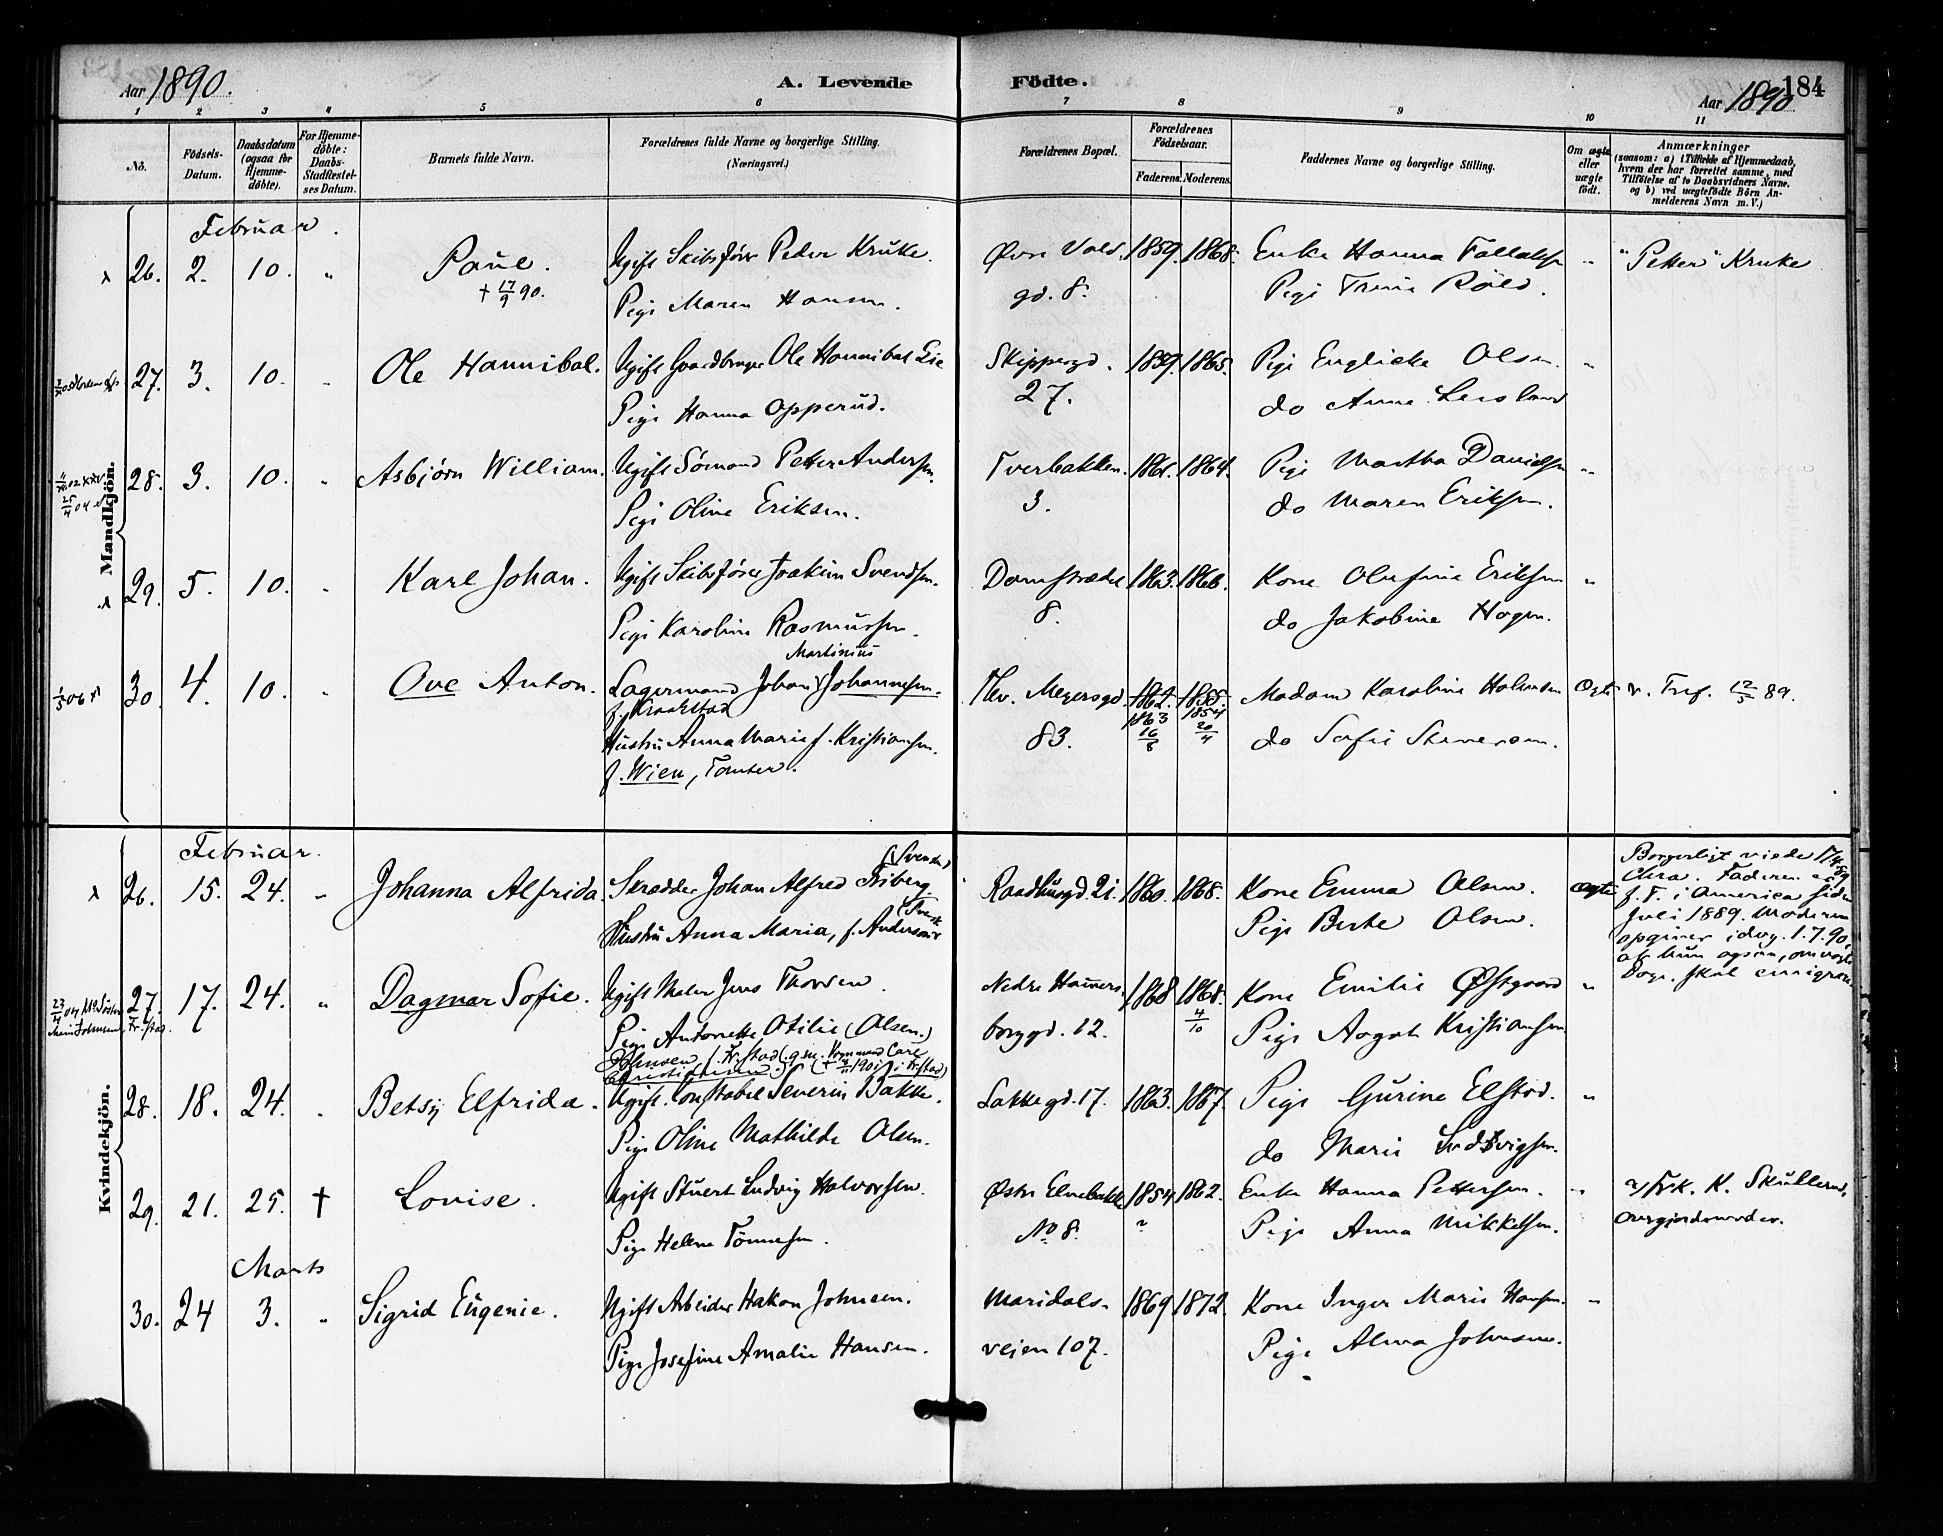 Aar 1890.
A. Levende Födte.
Aar 1890
184
1 2 3 4 5 6 7 8 9 10 11
No.
Födsels-Datum.
Daabsdatum (ogsaa for Hjemme-döbte).
For Hjemme-döbte: Daabs-Stadfæstel-ses Datum.
Barnets fulde Navn.
Forældrenes fulde Navne og borgerlige Stilling.
(Næringsvei.)
Forældrenes Bopæl.
Forældrenes Födselsaar.
Faderens. Moderens.
Faddernes Navne og borgerlige Stilling.
Om ægte eller uægte födt.
Anmærkninger
(saasom: a) i Tilfælde af Hjemmedaab,
hvem der har forrettet samme, med
Tilföielse af to Daabsvidners Navne,
og b) ved uægtefödte Börn An-
melderens Navn m. V.)
Mandkjön.
Februar.
26. 2. 10. " Paul. Ugift Skibsfører Peder Kruke. Øvre Vold- 1859. 1868. Enke Hanna " "Petter" Kruke
† 17/9 90. Pige Maren Hansen. gd. 8. Pige Trine
27. 3. 10. Ole Hannibal. Ugift Gaardbruger Ole Hannibal Lie Skippergd. 1859. 1865. Pige Englicke Olsen. "
Pige Hanna Opperud. 27. do Anna
28. 3. 10. Asbjörn William. Ugift Sømand Petter Andersen. Tverbakken. 1864. Pige Martha Davidsen "
Pige Oline Eriksen. 3. do Maren Eriksen.
29. 5. 10. Karl Johan. Ugift Skibsfører Joakim Svendsen. Damstrædet 1863. 1866. Kone Olufine Eriksen "
Pige Karoline Rasmussen. 8. do Jakobine Hagen.
Martinius
30. 4. 10. Ove Anton. Lagermand Johan Johannesen. Thv. Meyersgd. 1862. 1855. Madam Karoline Halvorsen Ægte v. Tref. 12/5 89.
f. Kraakstad 1863 1854
Hustru Anna Marie f. Kristiansen. 83. 16/8 20/4 do Sofie
f. Wien, Tomter.
Kvindekjön.
Februar.
26. 15. 24. " Johanna Alfrida. Skrædder Johan Alfred Friberg (Svensk) Raadhusgd 21. 1860. 1868. Kone Emma Olsen. Ægte
Hustru Anna Maria, f. Anderson (Svensk) Pige Berte Olsen.
Borgerligt viede 17/4 89
Chra. Faderen er
f. T. i America siden
Juli 1889. Moderen
opgiver idag 1.7.90,
at hun ogsaa,
Dage, skal emigrere.
27. 17. 24. " Dagmar Sofie. Ugift Maler Jens Thorsen. Nedre Hammers- 1868 1868. Kone Emilie Østgaard "
Pige Antonette Otilie (Olsen.) borggd. 12. 4/10 Pige Aagot Kristiansen
Johnsen, f. Fr.stad (g. m. Carl
Christiansen) i Fr.stad)
28. 18. 24. Betsy Elfrida. Ugift Constabel Severin Bakke. Lakkegd. 17. 1863. 1867. Pige Gurine Elstad. "
Pige Oline Mathilde Olsen. do Marie Ludvigsen.
29. 21. 25. † Lovise. Ugift Stuert Ludvig Halvorsen. Østre Elvebakke 1854 1862. Enke Hanna Pettersen. " v/ Frk. K. Skullerud,
Pige Helene Tönnesen. No 8. " Pige Anna Mikkelsen. Overgjordemoder.
Marts
30. 24 3. " Sigrid Eugenie. Ugift Arbeider Hakon Johnsen. Maridals- 1869 1872. Kone Inger Marie Hansen. "
Pige Josefine Amalie Hansen. veien 107. Pige Alma Johnsen.